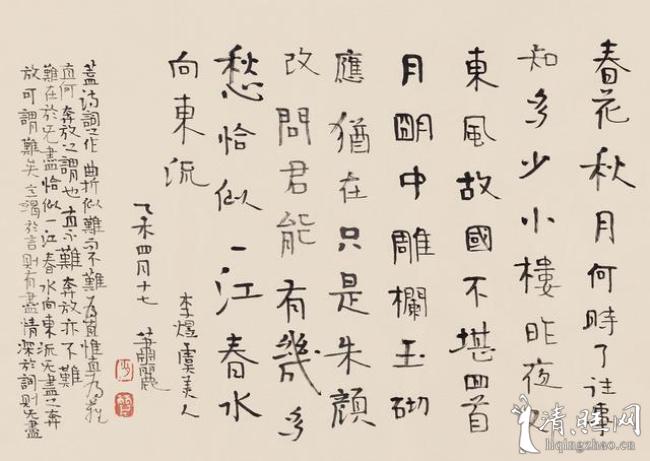 春花秋月何時了往事
知多少小樓昨夜又
東風故國不堪回首
月明中雕欄玉砌
應猶在只是朱顏
改問君能有幾多
愁恰似一江春水
向東流
李煜虞美人
乙未四月十七
蕭麗
蓋詩詞之作曲折似難而不難為直惟直為難
直何奔放之謂也直亦不難奔放亦不難
難在於无盡恰似一江春水向東流无盡之奔
放可謂難矣於言則有盡情深於詞則无盡
清照网
liqingzhao.cn